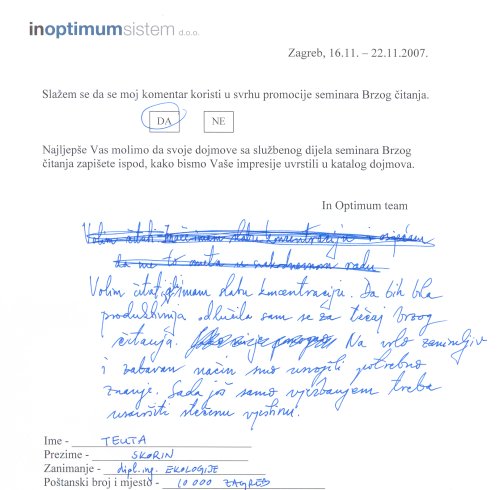 inoptimumsistem d.o.o.
Zagreb, 16.11. – 22.11.2007.
Slažem se da se moj komentar koristi u svrhu promocije seminara Brzog čitanja.
DA NE
Najljepše Vas molimo da svoje dojmove sa službenog dijela seminara Brzog
čitanja zapišete ispod, kako bismo Vaše impresije uvrstili u katalog dojmova.
In Optimum team
Volim čitati imam slabu koncentraciju i osjećam
da me to ometa u svakodnevnom radu
Volim čitati, imam slabu koncentraciju. Da bih bila
produktivnija odlučila sam se za tečaj brzog
čitanja. Na vrlo zanimljiv
i zabavan način smo usvojili potrebno
znanje. Sada još samo vježbanjem treba
usavršiti stečenu vještinu.
Ime - TEUTA
Prezime - SKORIN
Zanimanje - dipl.ing. EKOLOGIJE
Poštanski broj i mjesto - 10 000 ZAGREB